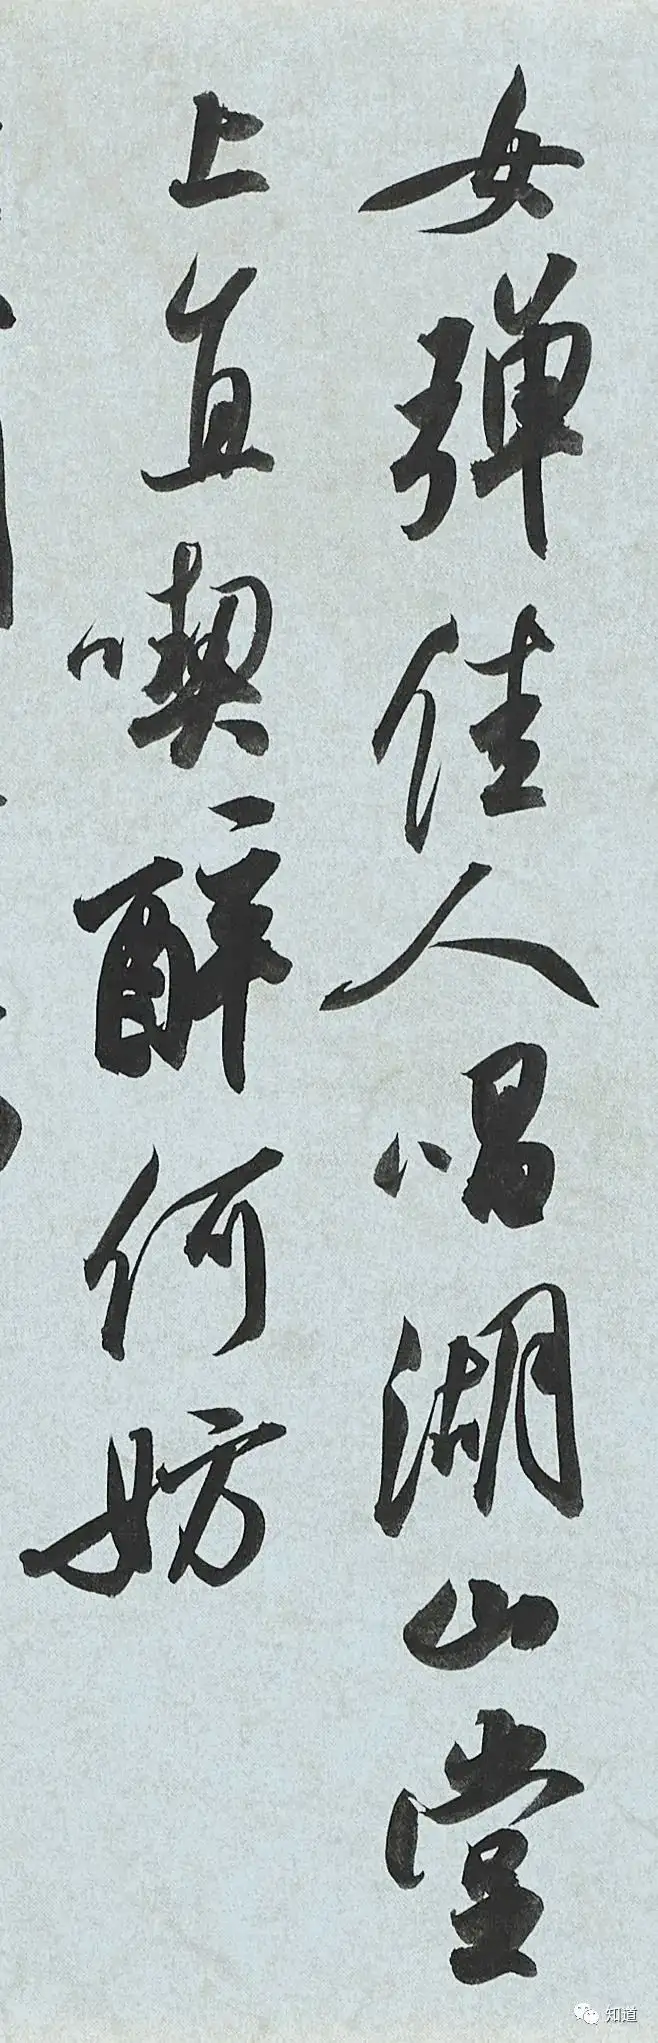 女弹佳人唱湖山堂
上直喫醉何妨
知道